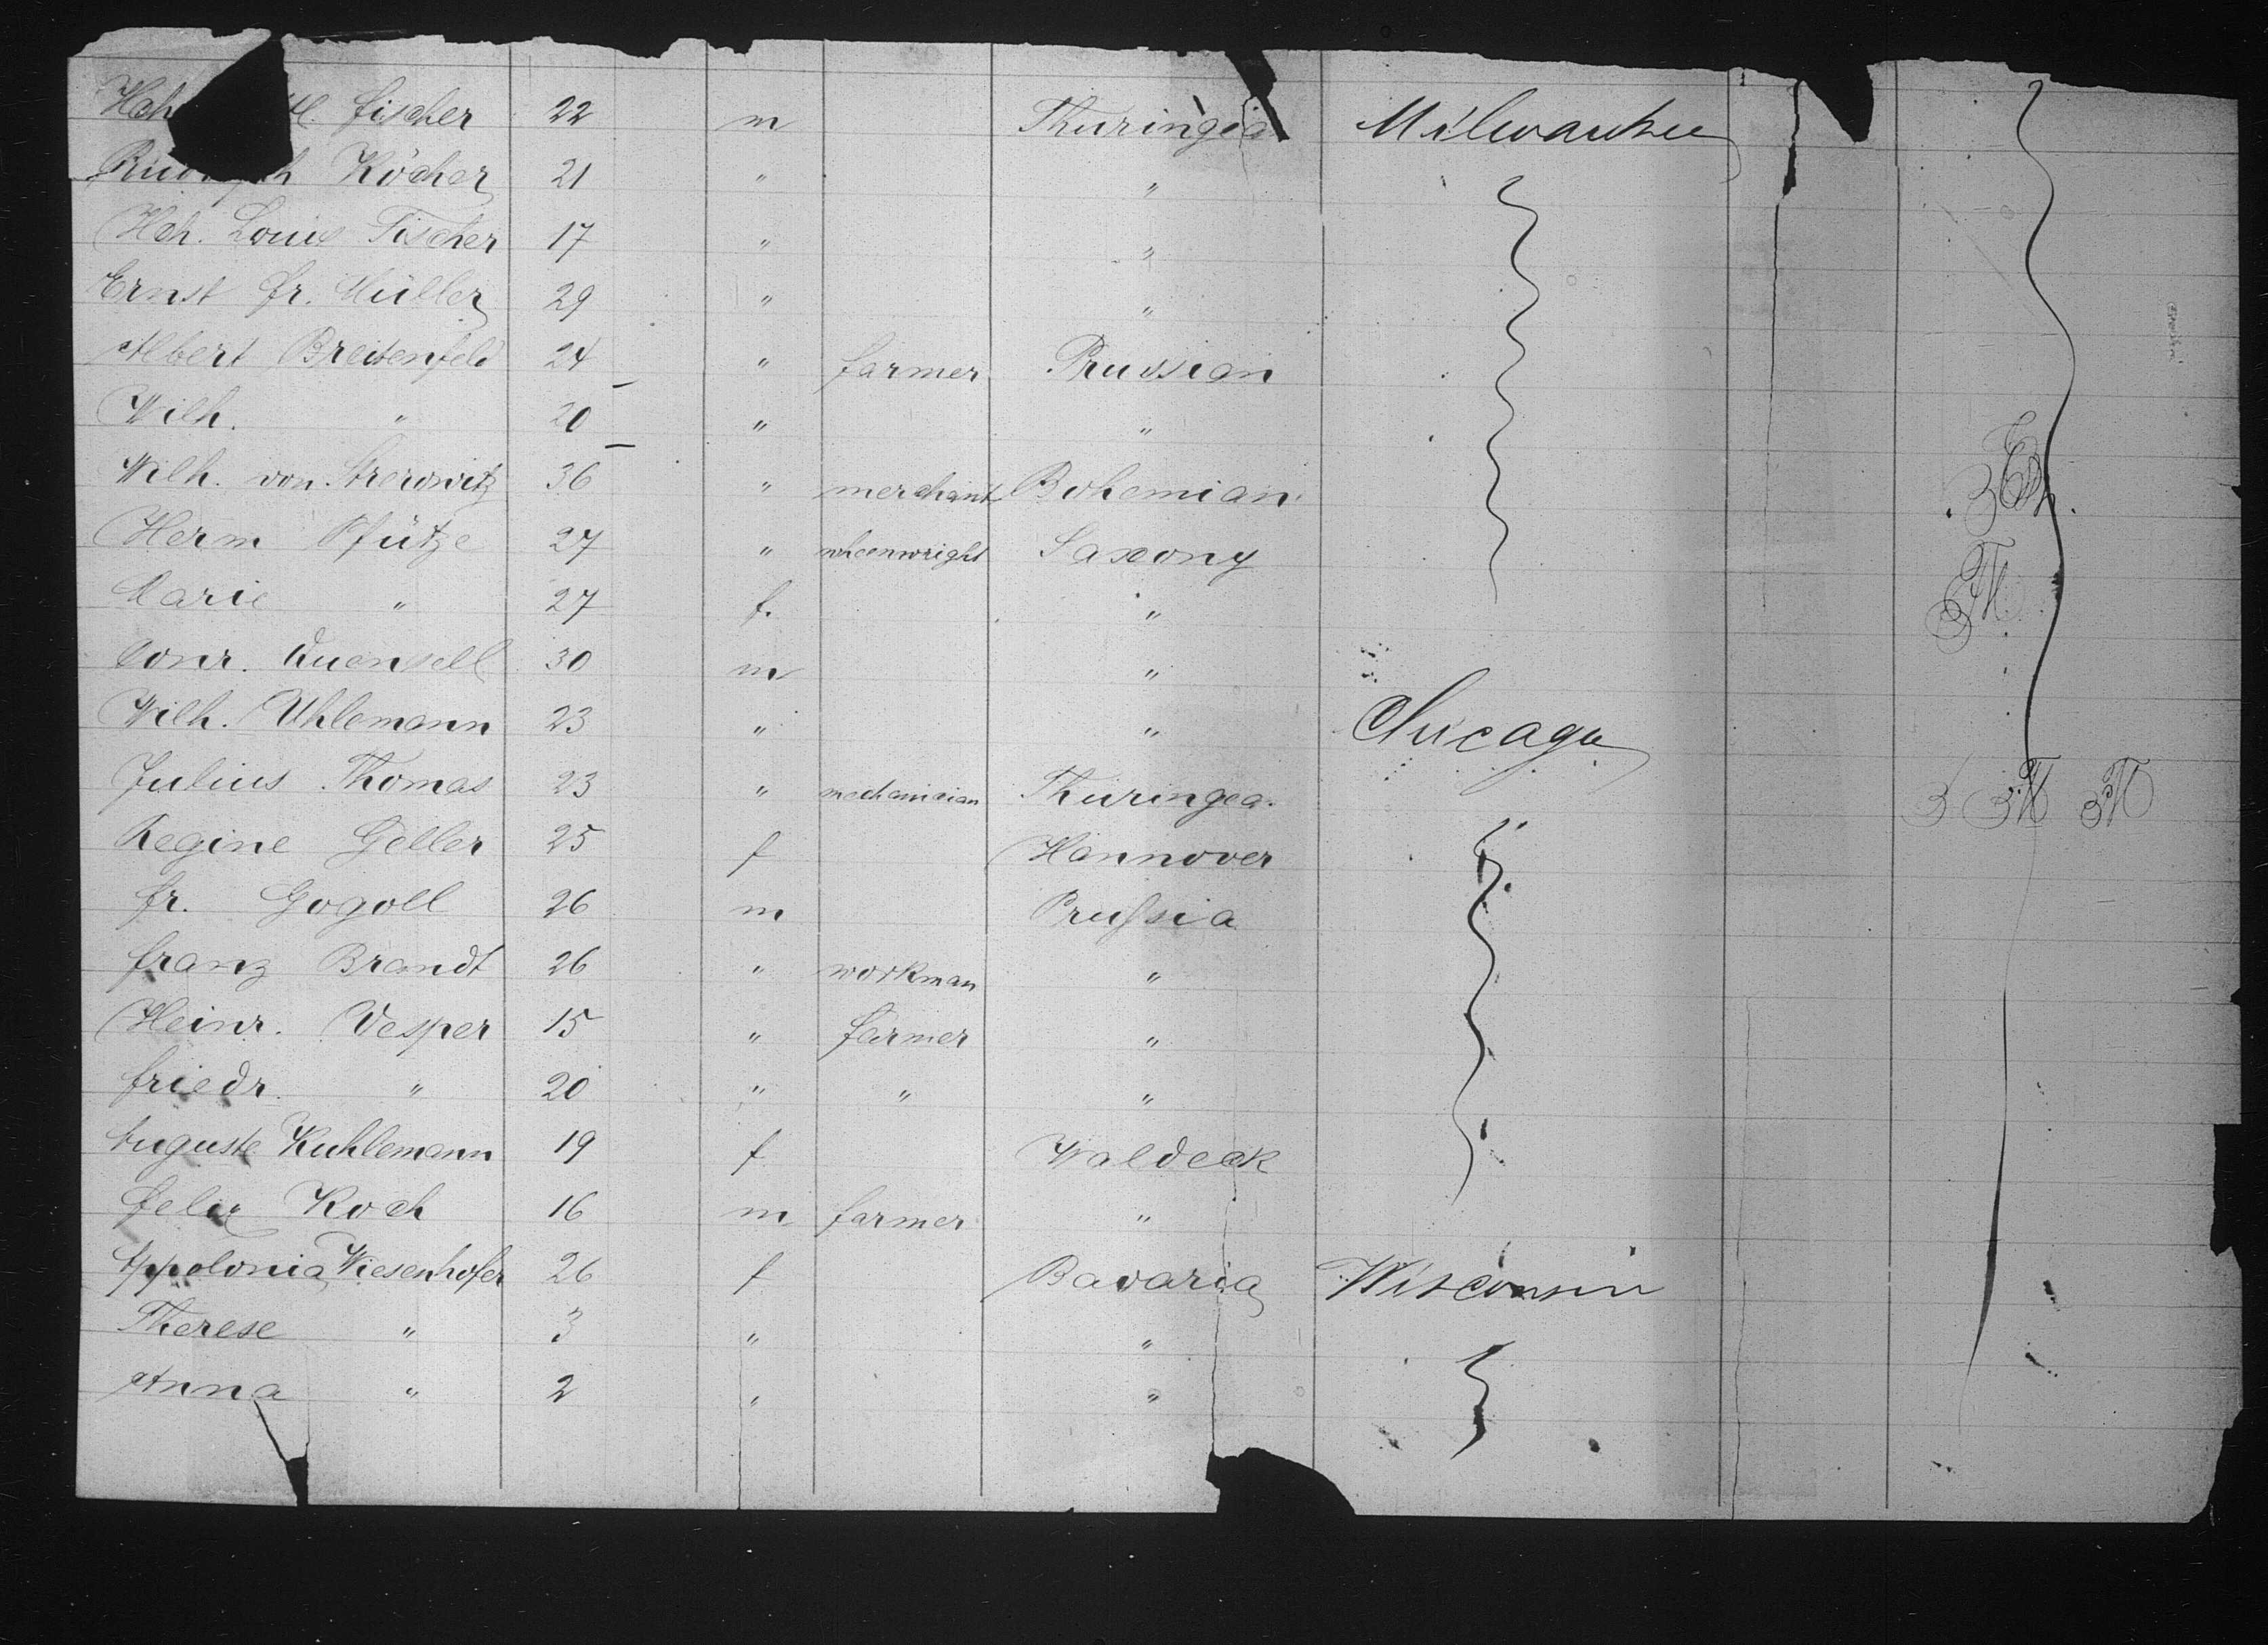 Hch. Fischer 22 m Thuringia Milwaukee
Rudolph Köcher 21 " "
Hch. Louis Fischer 17 " "
Ernst Fr. Müller 29 " "
Albert Breitenfeld 24 " farmer Prussian
Wilh. " 20 " "
Wilh. von 36 " merchant Bohemian
Herm Pfütze 27 " wheenwright Saxony
Marie " 27 f. "
Conr. Quensell 30 m "
Wilh. Uhlemann 23 " " Chicago
Julius Thomas 23 " mechanician Thuringea.
Regine Geller 25 f Hannover
Fr. Gogoll 26 m Prussia
Franz Brandt 26 " workman "
Heinr. Vesper 15 " farmer "
Friedr. " 20 " " "
Auguste Kuhlemann 19 f Waldeck
Felix Koch 16 m farmer "
Appolonia Wiesenhofer 26 f Bavaria Wisconsin
Therese " 3 " "
Anna " 2 " "